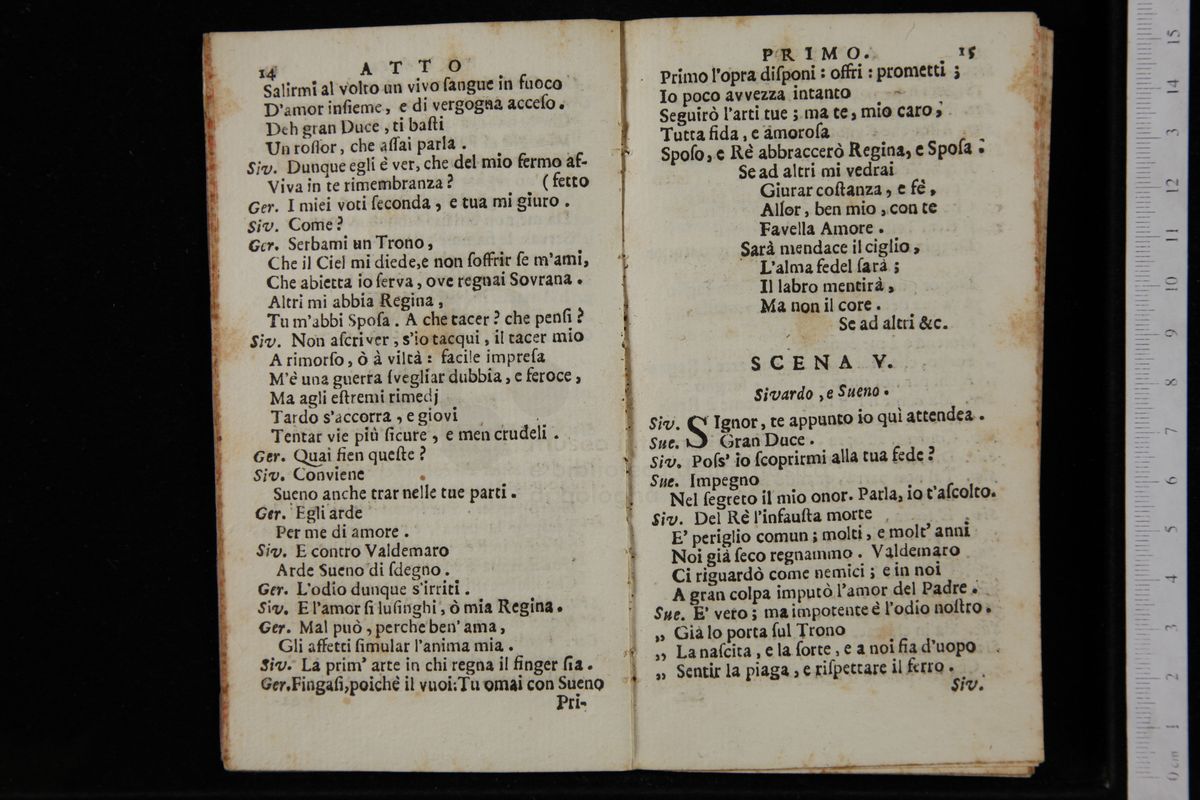 14 ATTO
Salirmi al volto un vivo ſangue in fuoco
D'amor inſieme, e di vergogna acceſo.
Deh gran Duce, ti baſti
Un roſſor, che aſſai parla.
Siv. Dunque egli è ver, che del mio fermo af-
Viva in te rimembranza? (fetto
Ger. I miei voti ſeconda, e tua mi giuro.
Siv. Come?
Ger. Serbami un Trono,
Che il Ciel mi diede, e non ſoffrir ſe m'ami,
Che abietta io ſerva, ove regnai Sovrana.
Altri mi abbia Regina,
Tu m'abbi Spoſa. A che tacer? che penſi?
Siv. Non aſcriver, s'io tacqui, il tacer mio
A rimorſo, ò à viltà: facile impreſa
M'è una guerra ſvegliar dubbia, e feroce,
Ma agli eſtremi rimedj
Tardo s'accorra, e giovi
Tentar vie più ſicure, e men crudeli.
Ger. Quai fien queſte?
Siv. Conviene
Sueno anche trar nelle tue parti.
Ger. Egli arde
Per me di amore.
Siv. E contro Valdemaro
Arde Sueno di ſdegno.
Ger. L'odio dunque s'irriti.
Siv. E l'amor ſi luſinghi, ò mia Regina.
Ger. Mal può, perche ben' ama,
Gli affetti ſimular l'anima mia.
Siv. La prim' arte in chi regna il finger ſia.
Ger. Fingaſi, poichè il vuoi: Tu omai con Sueno
Pri-
PRIMO. 15
Primo l'opra diſponi: offri: prometti;
Io poco avvezza intanto
Seguirò l'arti tue; ma te, mio caro,
Tutta fida, e amoroſa
Spoſo, e Rè abbraccerò Regina, e Spoſa.
Se ad altri mi vedrai
Giurar coſtanza, e fè,
Allor, ben mio, con te
Favella Amore.
Sarà mendace il ciglio,
L'alma fedel ſarà;
Il labro mentirà,
Ma non il core.
Se ad altri &c.
SCENA V.
Sivardo, e Sueno.
Siv. SIgnor, te appunto io quì attendea.
Sue. Gran Duce.
Siv. Poſs' io ſcoprirmi alla tua fede?
Sue. Impegno
Nel ſegreto il mio onor. Parla, io t'aſcolto.
Siv. Del Rè l'infauſta morte
E' periglio comun; molti, e molt' anni
Noi già ſeco regnammo. Valdemaro
Ci riguardò come nemici; e in noi
A gran colpa imputò l'amor del Padre.
Sue. E' vero; ma impotente è l'odio noſtro.
„ Già lo porta ſul Trono
„ La naſcita, e la ſorte, e a noi fia d'uopo
„ Sentir la piaga, e riſpettare il ferro.
Siv.